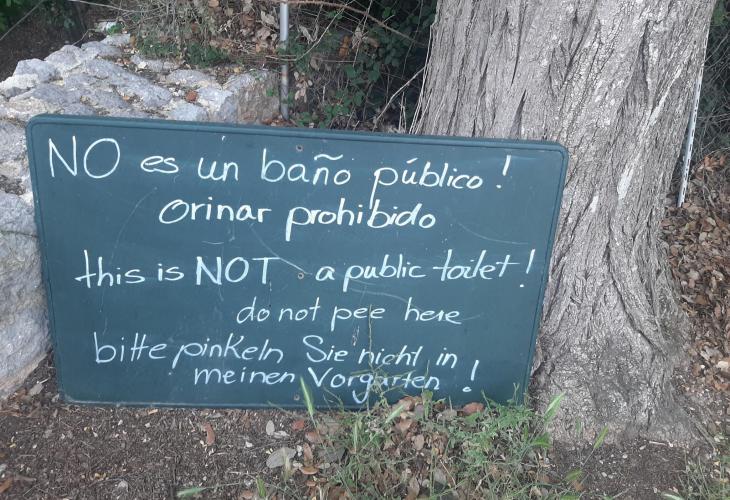 NO es un baño público!
Orinar prohibido
this is NOT a public toilet!
do not pee here
bitte pinkeln Sie nicht in
meinen Vorgarten!